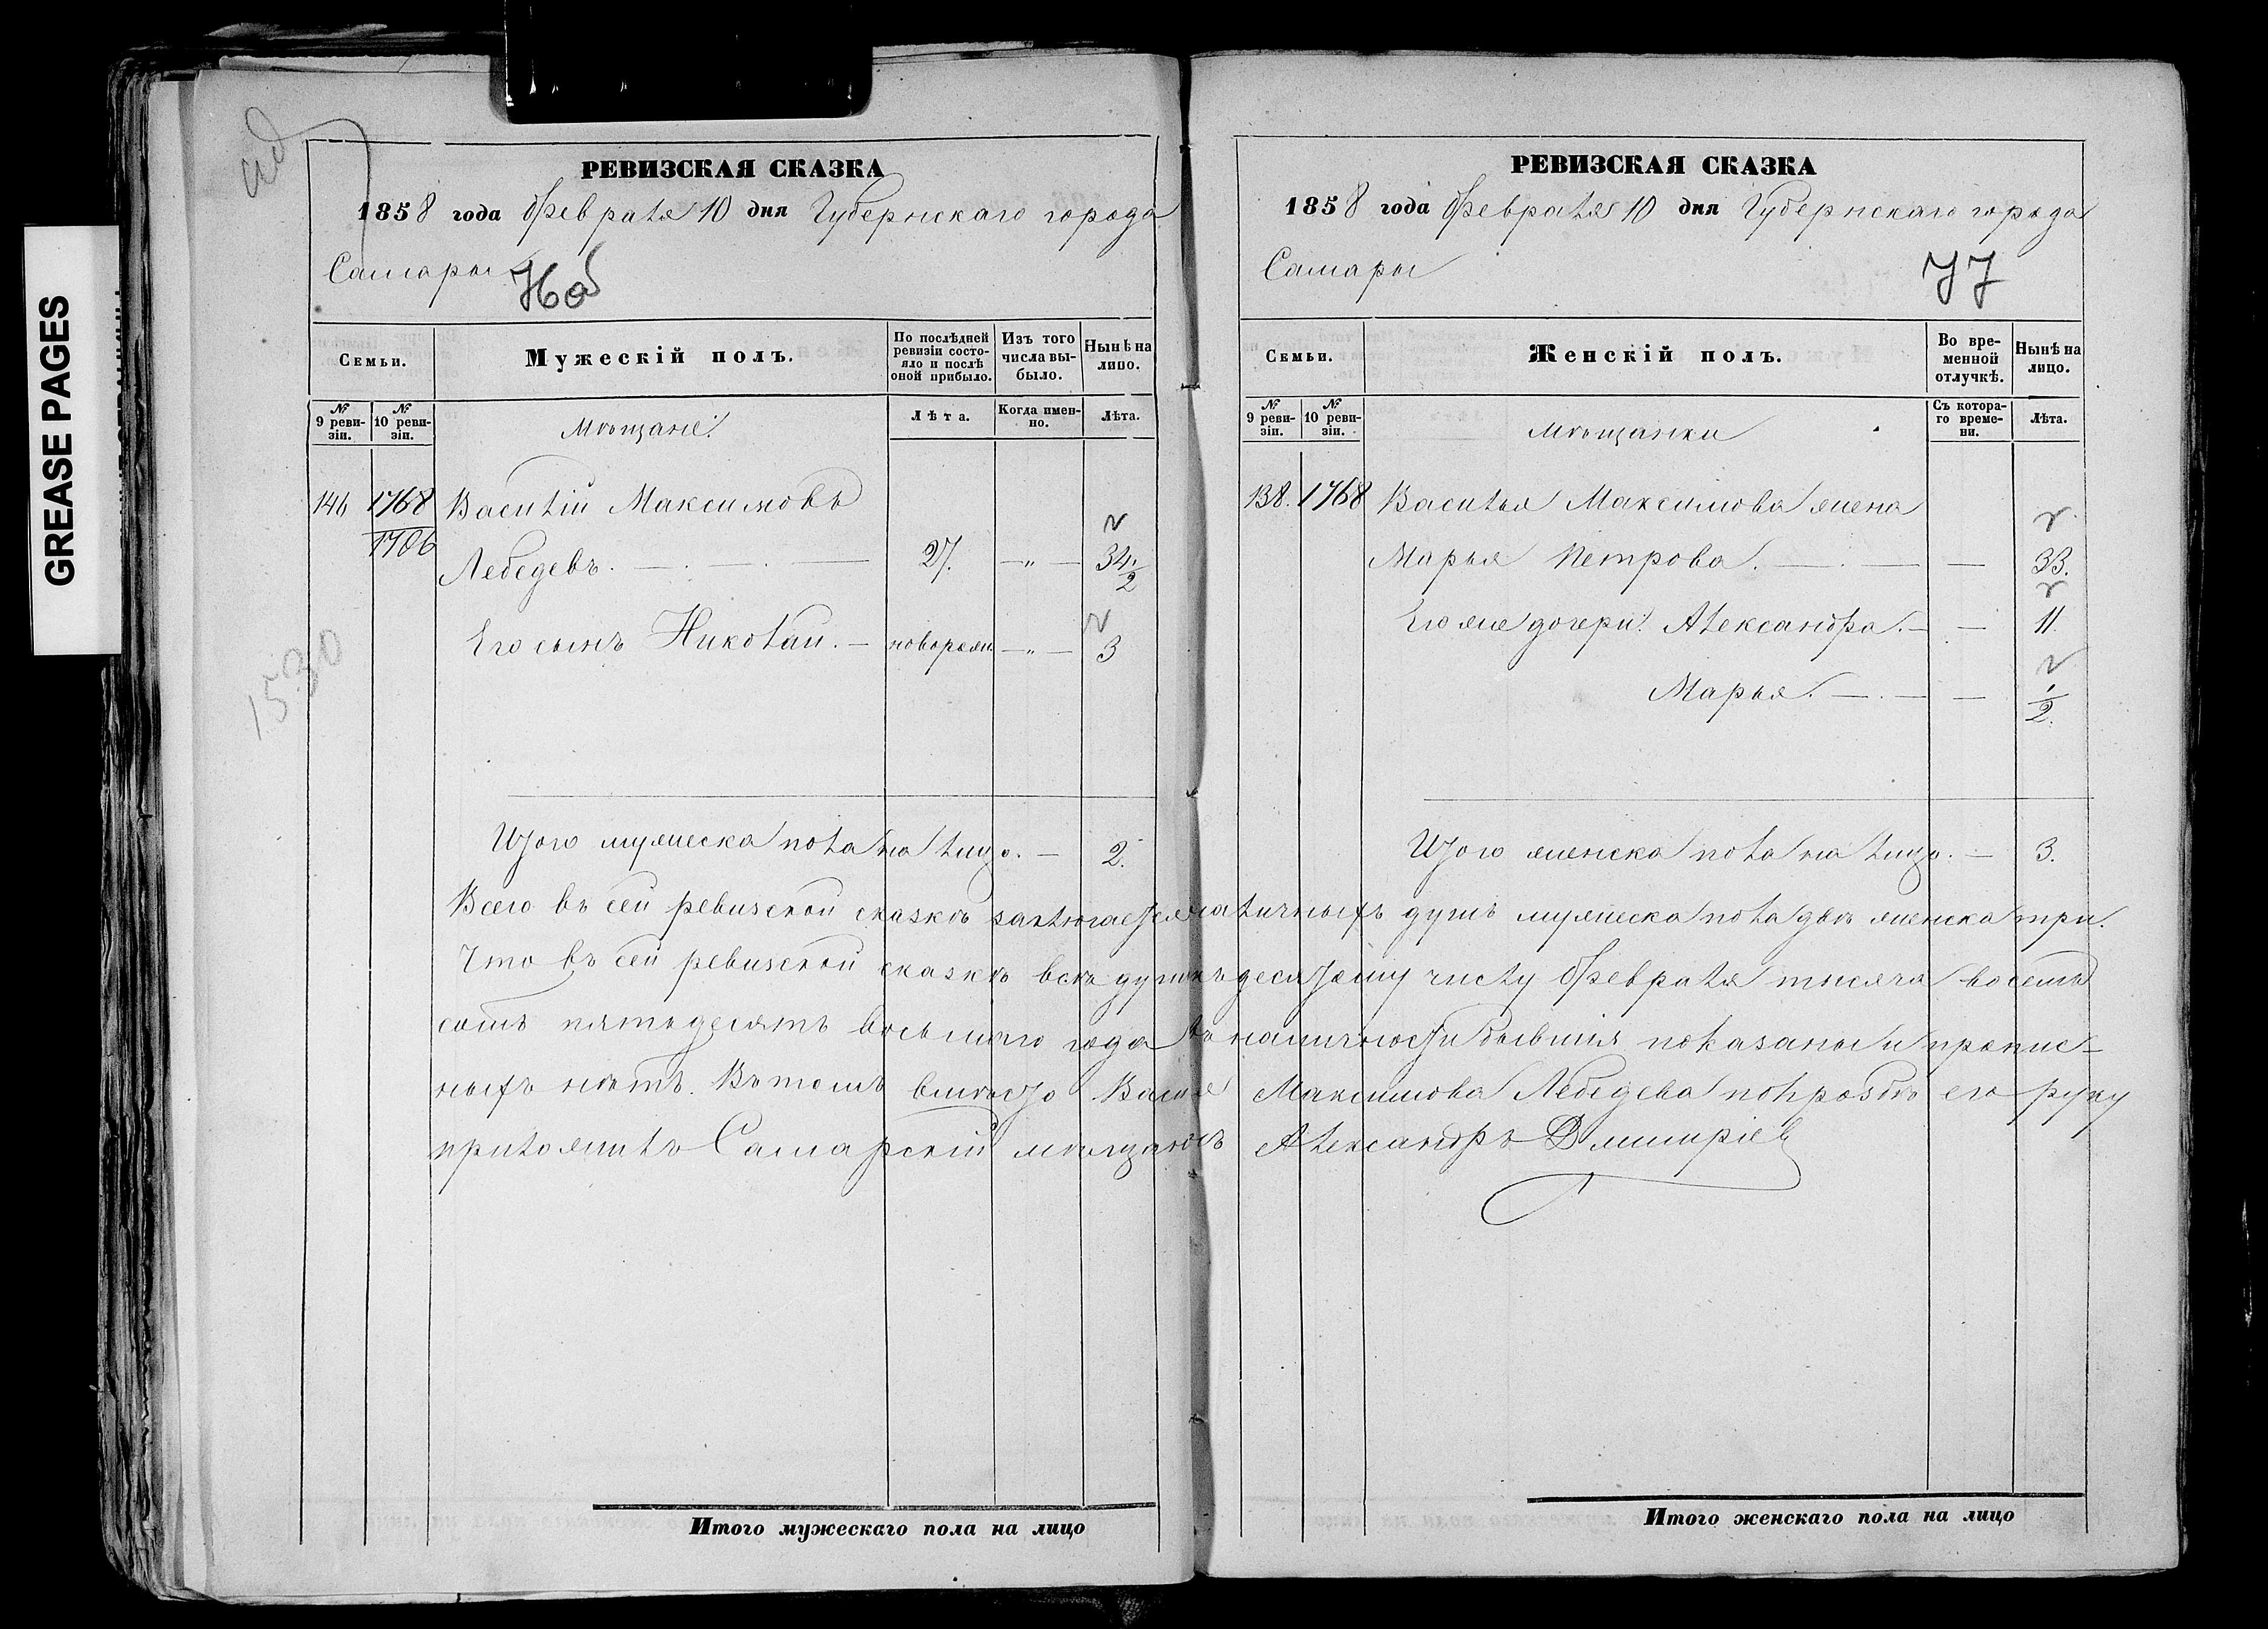 GREASE PAGES
РЕВИЗСКАЯ СКАЗКА
1858 года Февраля 10 дня Губернскаго города
Самары
Семьи.
Мужескій полъ.
По послѣдней ревизіи состо-
яло и послѣ оной прибыло.
Изъ того числа вы-
было.
Нынѣ на лицо.
№ 9 реви-
зіи.
№ 10 реви-
зіи.
Мѣщане:
Лѣта.
Когда имен-
но.
Лѣта.
146 1768 Василій Максимовъ
Лебедевъ. 27. — „ — 34 1/2
Его сынъ Николай. — новорож — „ — 3
1530
Итого мужеска пола на лицо. — 2.
Итого мужескаго пола на лицо
РЕВИЗСКАЯ СКАЗКА
1858 года Февраля 10 дня Губернскаго города
Самары
77
Семьи.
Женскій полъ.
Во вре-
менной отлучкѣ.
Нынѣ на лицо.
№ 9 реви-
зіи.
№ 10 реви-
зіи.
Мѣщанки
Съ котора-
го време-
ни.
Лѣта.
138. 1768 Василья Максимова жена
Марья Петрова. — 33.
Его же дочери: Александра. — 11.
Марья. — 1/2.
Итого женска пола на лицо. — 3.
Всего въ сей ревизской сказкѣ заключается наличныхъ душъ мужеска пола двѣ женска три.
Что въ сей ревизской сказкѣ всѣ души къ десятому числу Февраля тысяча восемь
сотъ пятьдесятъ восьмаго года въ наличности бывшія показаны и пропис-
ныхъ нѣтъ. Въ томъ вмѣсто Василья Максимова Лебедева по прозбѣ его руку
приложилъ Самарскій мѣщанинъ Александръ Дмитріев
Итого женскаго пола на лицо